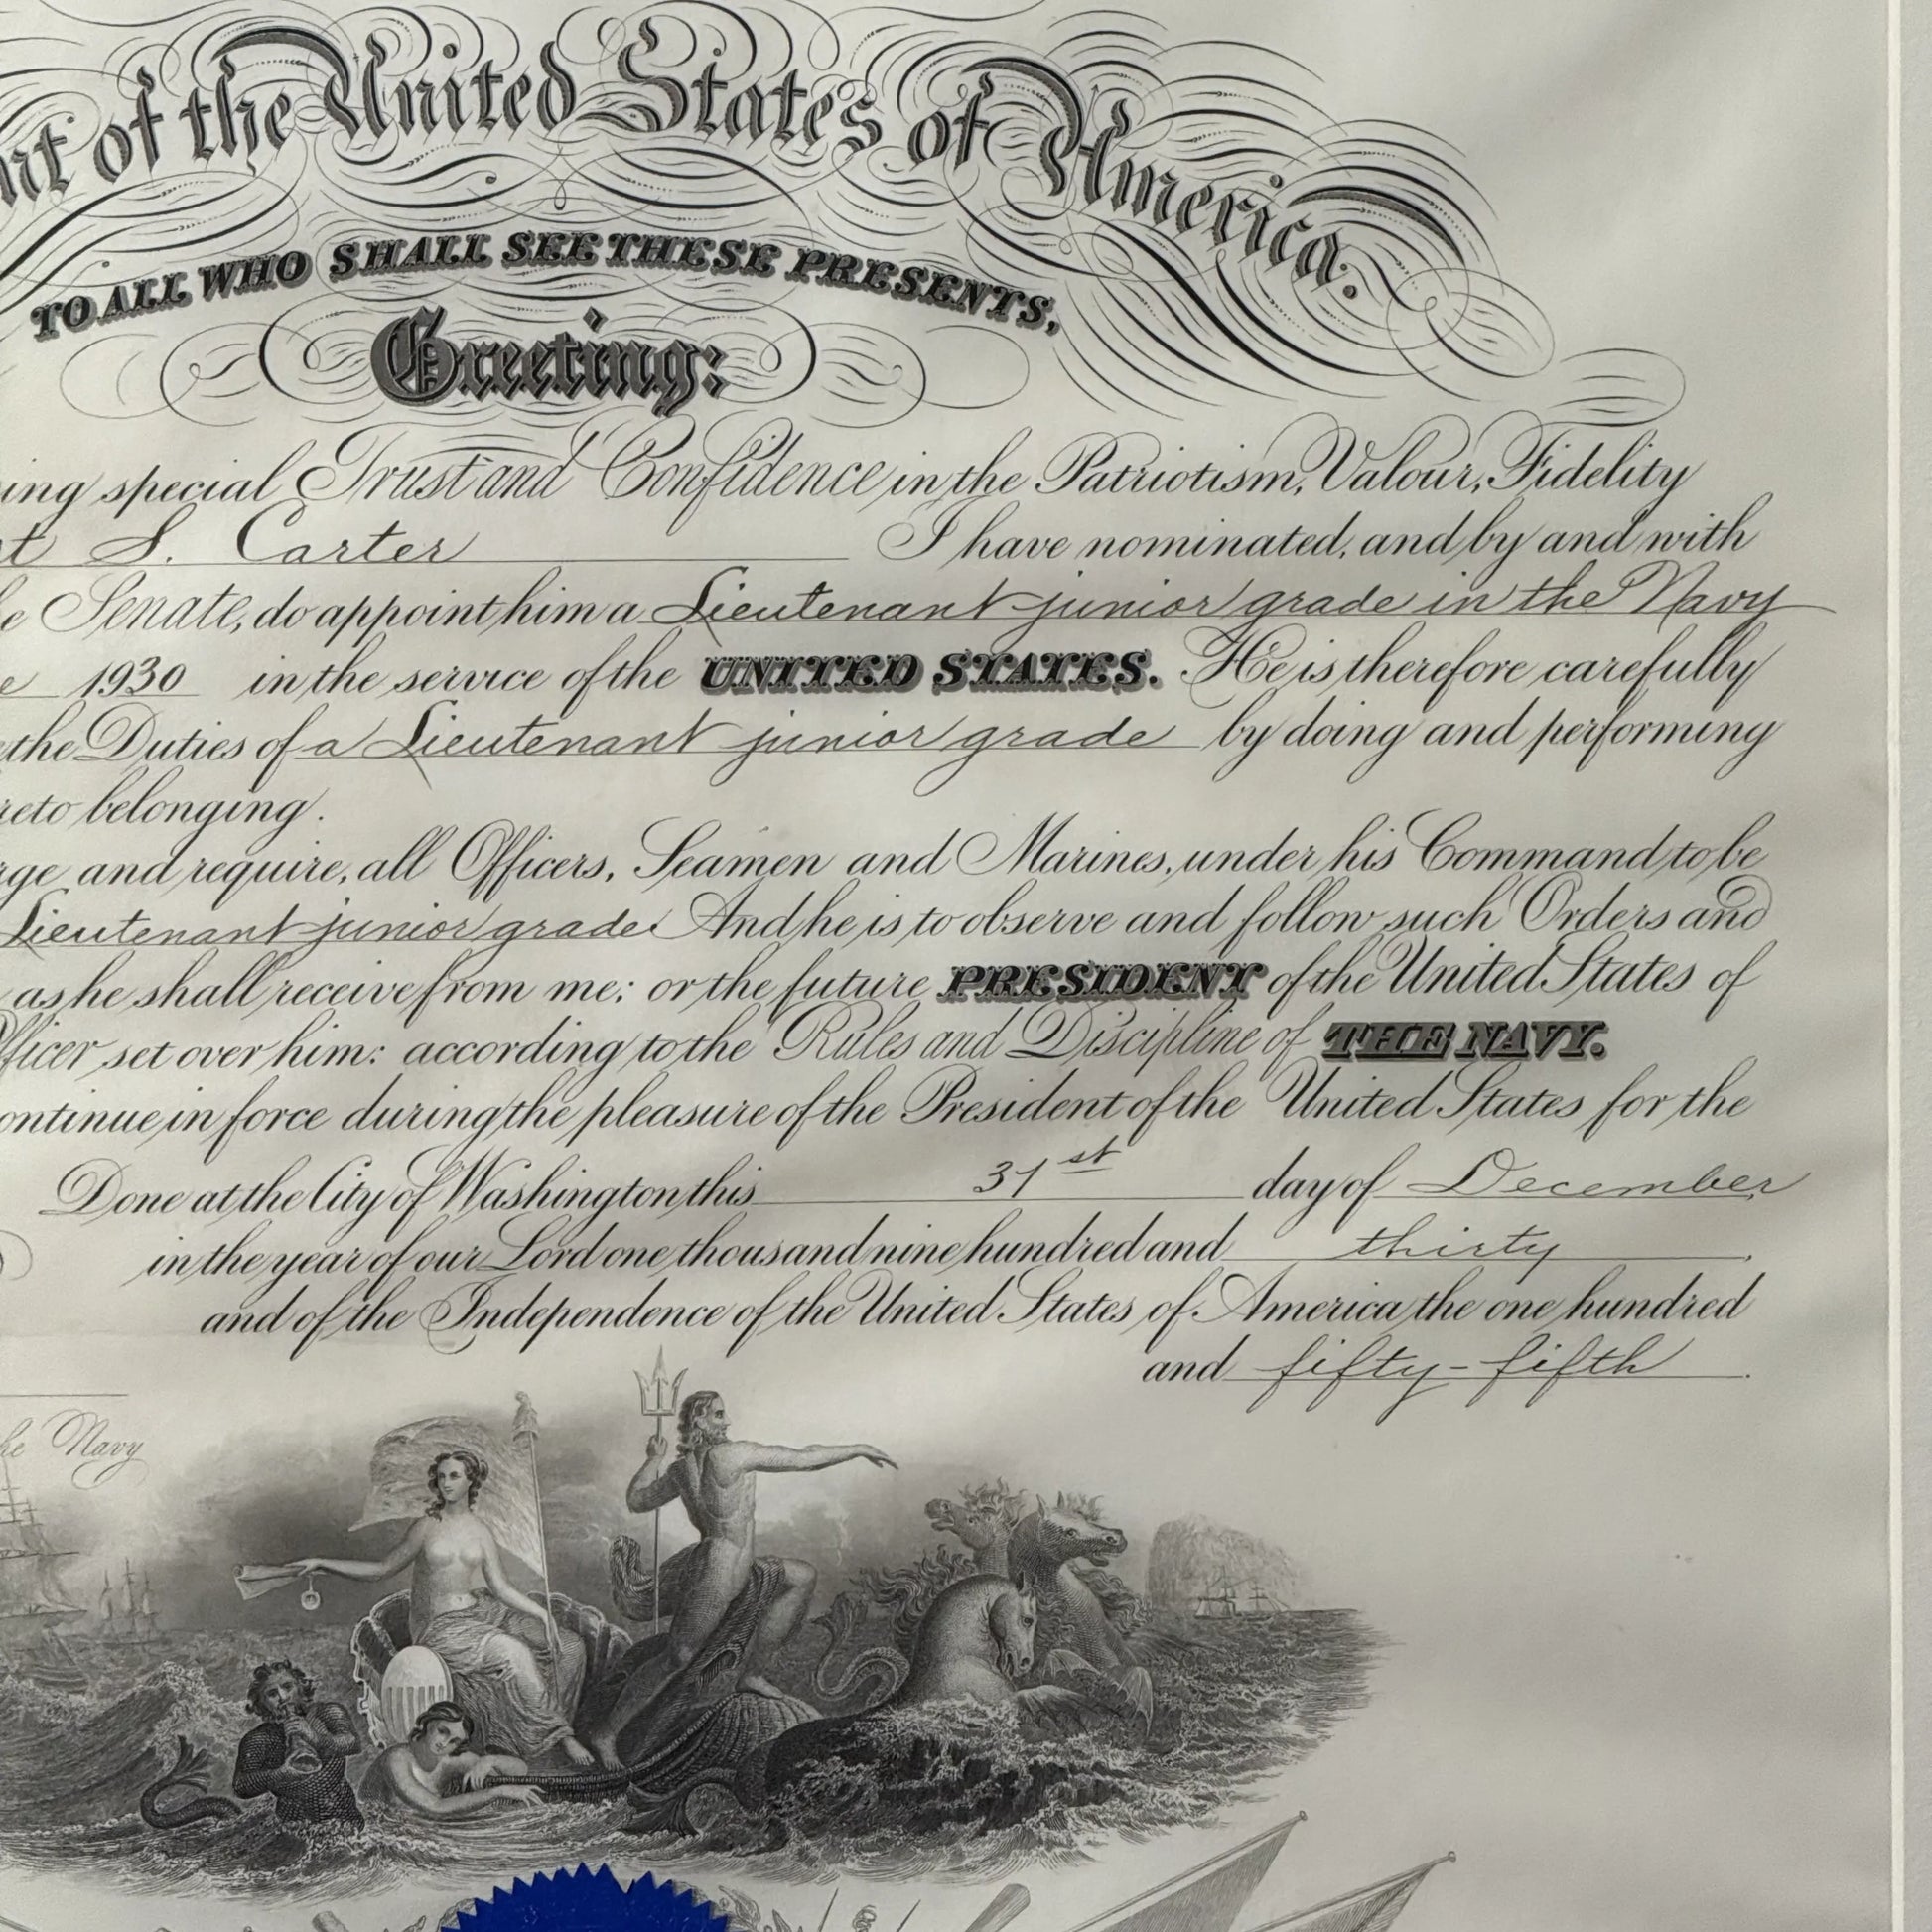 nt of the United States of America.
TO ALL WHO SHALL SEE THESE PRESENTS,
Greeting:
ing special Trust and Confidence in the Patriotism, Valour, Fidelity
t S. Carter I have nominated, and by and with
e Senate, do appoint him a Lieutenant junior grade in the Navy
e 1930 in the service of the UNITED STATES. He is therefore carefully
the Duties of a Lieutenant junior grade by doing and performing
reto belonging.
rge and require, all Officers, Seamen and Marines, under his Command to be
Lieutenant junior grade. And he is to observe and follow such Orders and
as he shall receive from me; or the future PRESIDENT of the United States of
fficer set over him: according to the Rules and Discipline of THE NAVY.
ontinue in force during the pleasure of the President of the United States for the
Done at the City of Washington this 31st day of December,
in the year of our Lord one thousand nine hundred and thirty,
and of the Independence of the United States of America the one hundred
and fifty-fifth.
he Navy